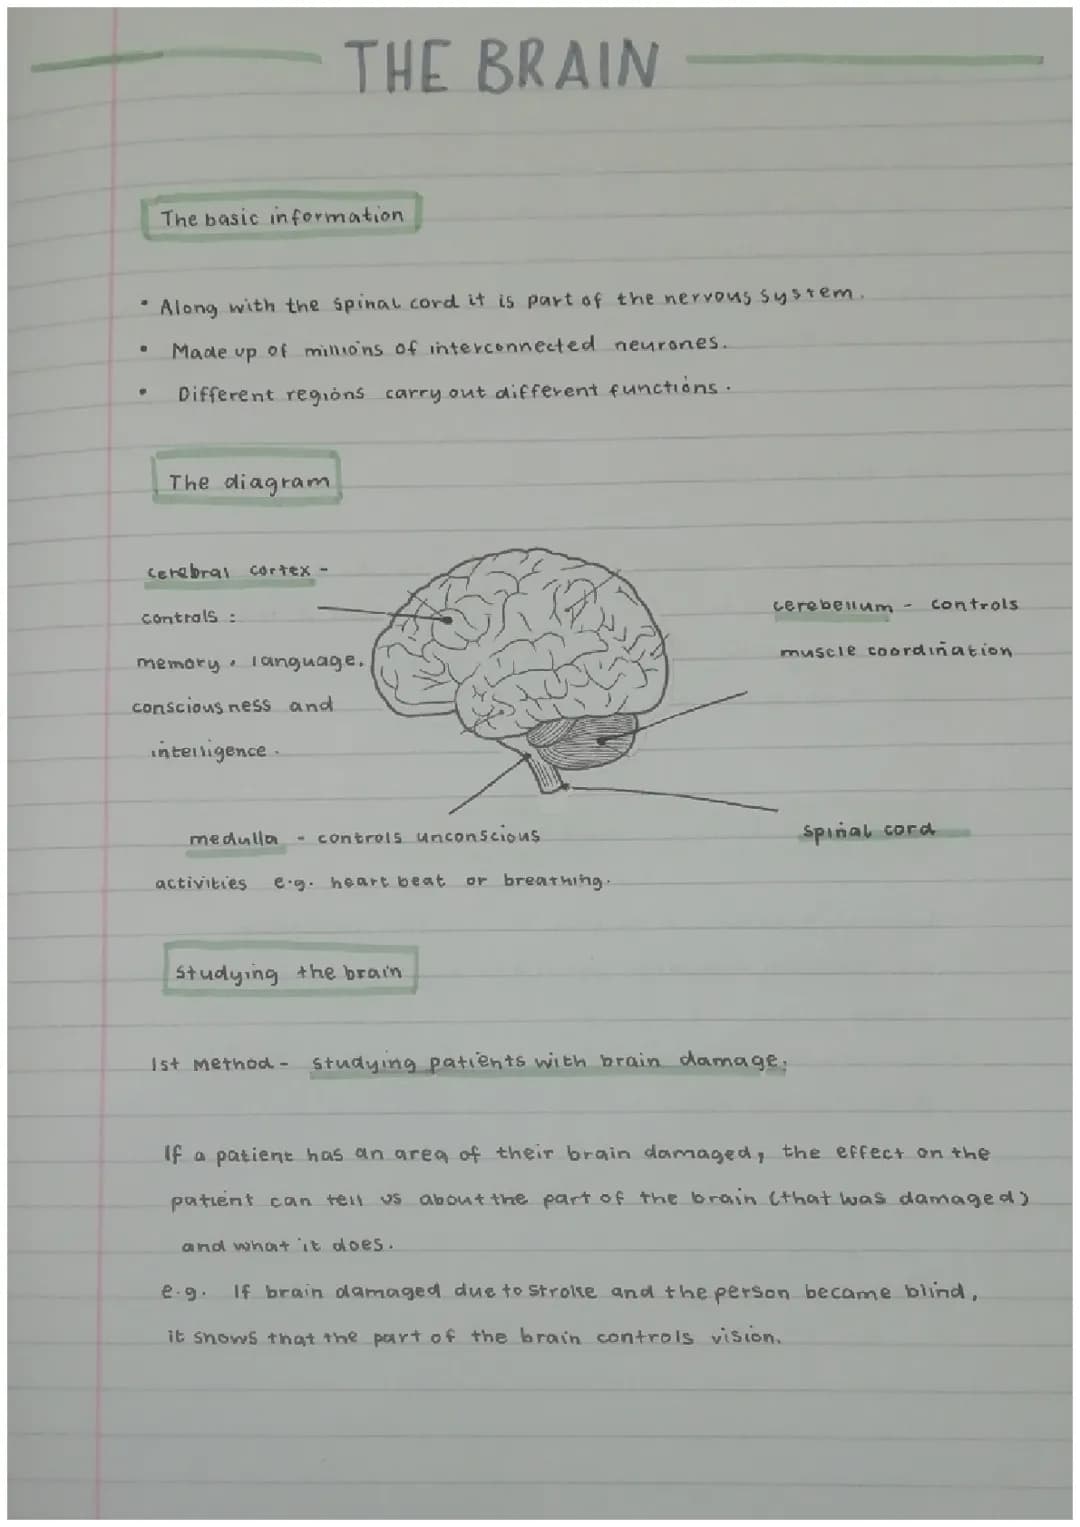 THE BRAIN
The basic information
• Along with the spinal cord it is part of the nervous system.
• Made up of millions of interconnected neurones.
• Different regions carry out different functions.
The diagram
cerebral cortex -
controls :
memory, language,
consciousness and
intelligence.
cerebellum - controls
muscle coordination
medulla - controls unconscious
activities e.g. heart beat or breathing.
spinal cord
Studying the brain
1st Method - studying patients with brain damage.
If a patient has an area of their brain damaged, the effect on the
patient can tell us about the part of the brain (that was damaged)
and what it does.
e.g. If brain damaged due to stroke and the person became blind,
it shows that the part of the brain controls vision.